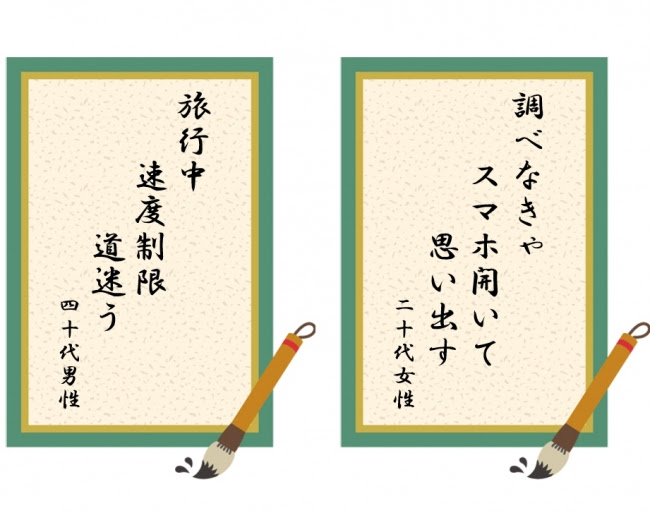 旅行中
速度制限
道迷う
四十代男性
調べなきゃ
スマホ開いて
思い出す
二十代女性